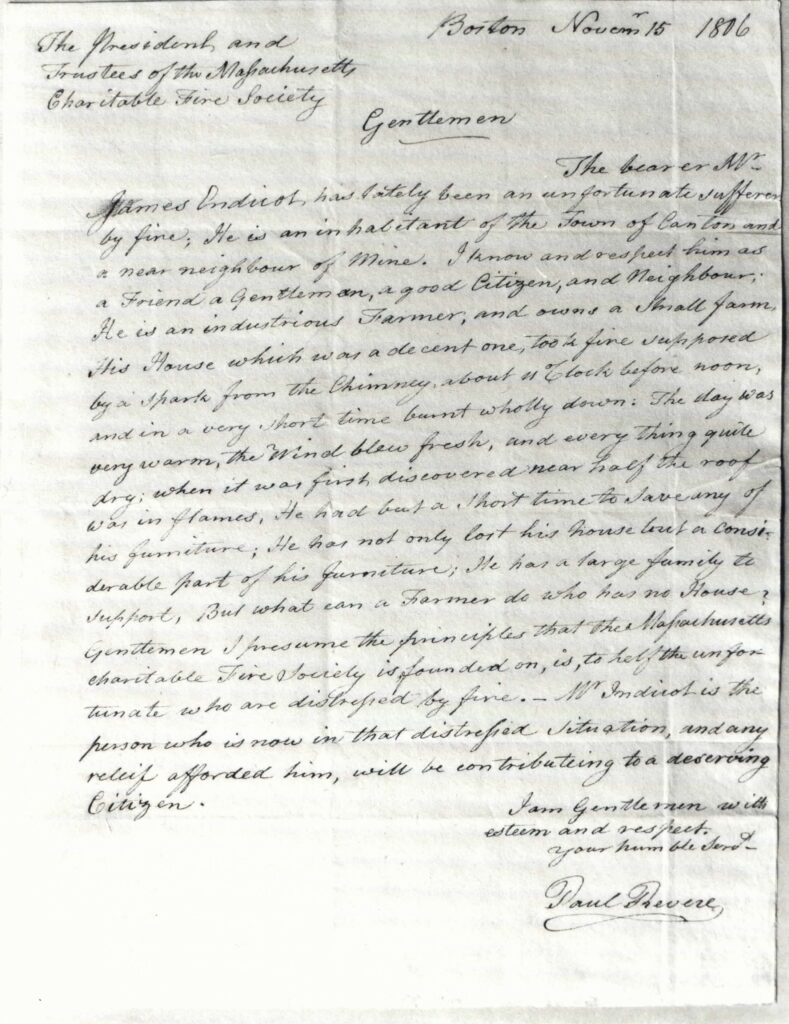 Boston Novemr 15 1806
The President and
Trustees of the Massachusetts
Charitable Fire Society
Gentlemen
The bearer Mr
James Endicot, has lately been an unfortunate sufferer
by fire; He is an inhabitant of the Town of Canton and
a near neighbour of Mine. I know and respect him as
a Friend a Gentleman, a good Citizen, and Neighbour;
He is an industrious Farmer, and owns a Small farm,
His House which was a decent one, took fire supposed
by a spark from the Chimney, about 11 oClock before noon,
and in a very short time burnt wholly down: The day was
very warm, the Wind blew fresh, and every thing quite
dry; when it was first discovered near half the roof
was in flames, He had but a short time to save any of
his furniture; He has not only lost his house but a consi-
derable part of his furniture; He has a large family to
support, But what can a Farmer do who has no House?
Gentlemen I presume the principles that the Massachusetts
charitable Fire Society is founded on, is, to help the unfor
tunate who are distressed by fire. — Mr Indicot is the
person who is now in that distressed situation, and any
releif afforded him, will be contributeing to a deserving
Citizen.
I am Gentlemen with
esteem and respect.
your humble Servt
Paul Revere